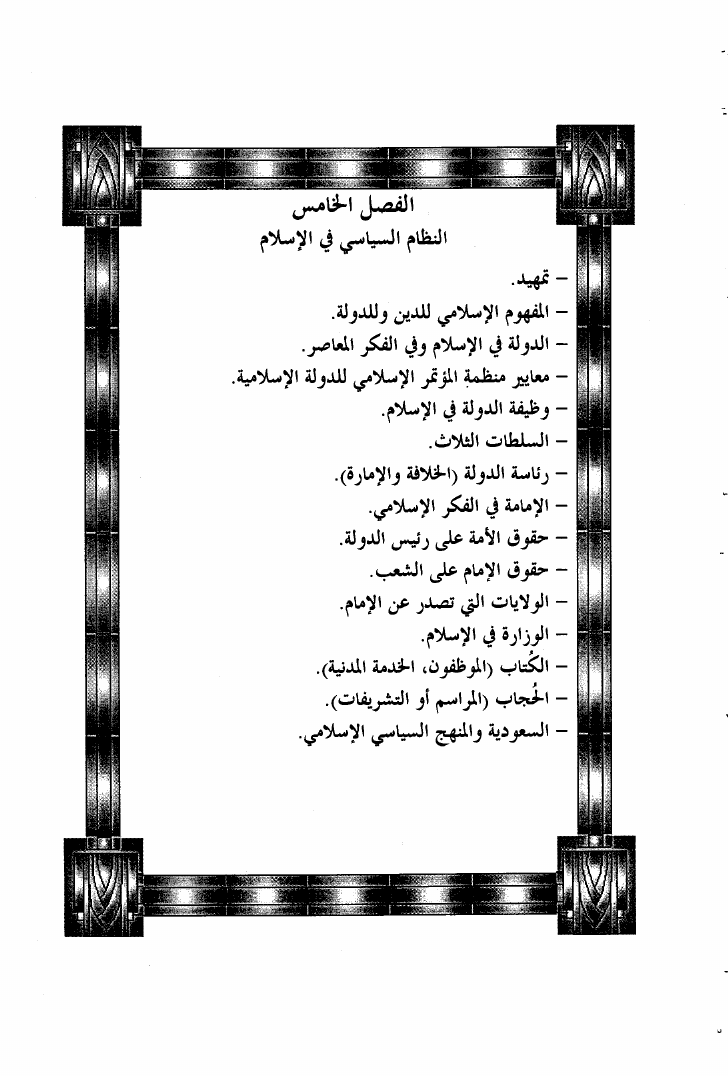 الفصل الخامس
النظام السياسي في الإسلام
– تمهيد.
– المفهوم الإسلامي للدين وللدولة.
– الدولة في الإسلام وفي الفكر المعاصر.
– معايير منظمة المؤتمر الإسلامي للدولة الإسلامية.
– وظيفة الدولة في الإسلام.
– السلطات الثلاث.
– رئاسة الدولة (الخلافة والإمارة).
– الإمامة في الفكر الإسلامي.
– حقوق الأمة على رئيس الدولة.
– حقوق الإمام على الشعب.
– الولايات التي تصدر عن الإمام.
– الوزارة في الإسلام.
– الكُتاب (الموظفون، الخدمة المدنية).
– الحُجاب (المراسم أو التشريفات).
– السعودية والمنهج السياسي الإسلامي.